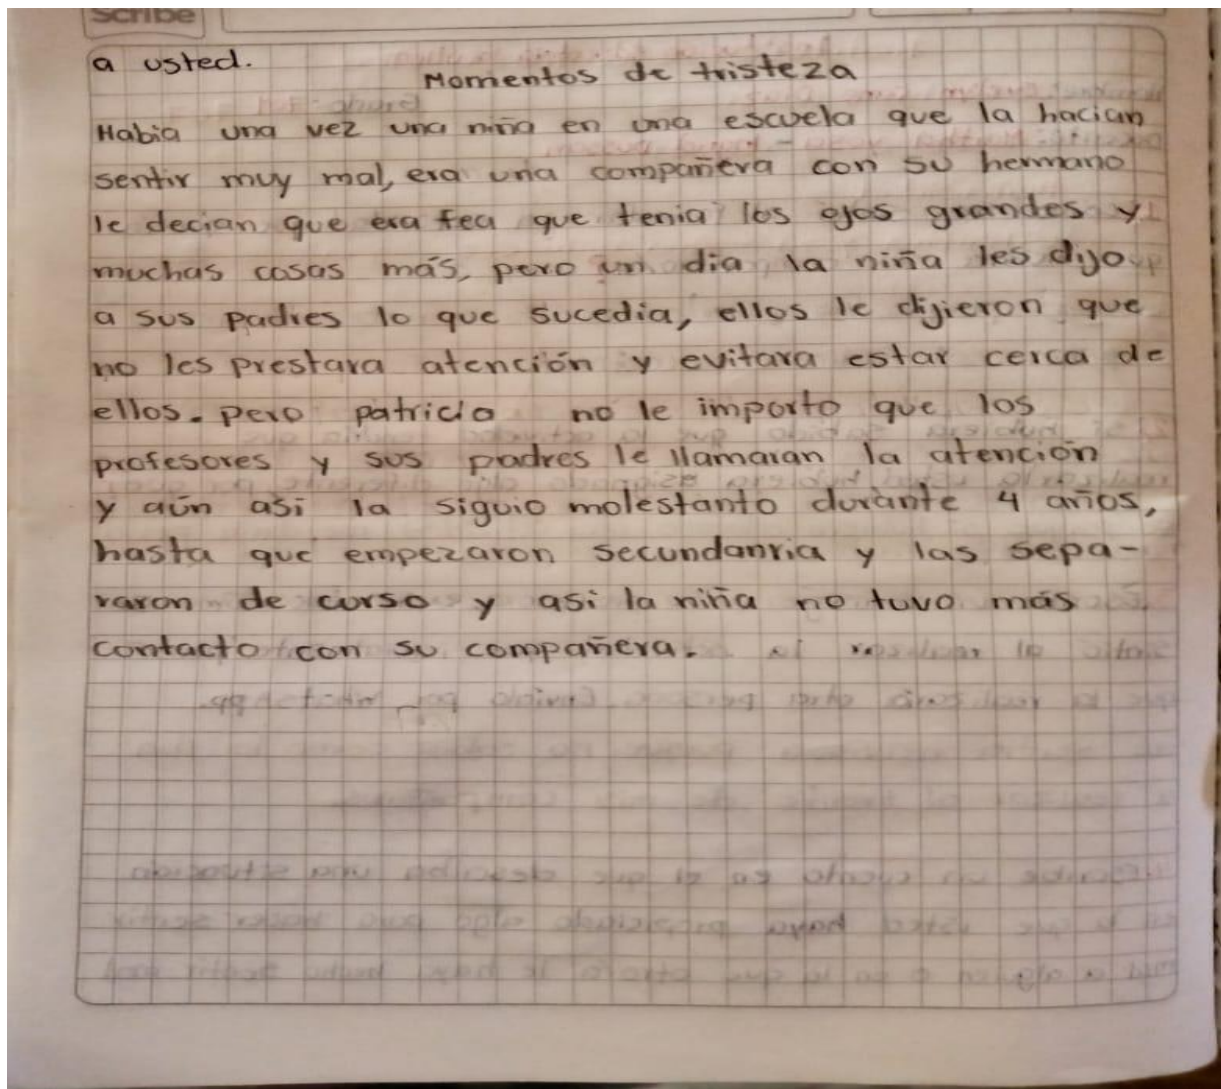 Scribe
a usted.
Momentos de tristeza
Habia una vez una niña en una escuela que la hacian
sentir muy mal, era una compañera con su hermano
le decian que era fea que tenia los ojos grandes y
muchas cosas más, pero un dia la niña les dijo
a sus padres lo que sucedia, ellos le dijieron que
no les prestara atención y evitara estar cerca de
ellos. pero patricia no le importo que los
profesores y sus padres le llamaran la atención
y aún asi la siguio molestanto durante 4 años,
hasta que empezaron secundanria y las sepa-
raron de curso y asi la niña no tuvo más
contacto con su compañera.